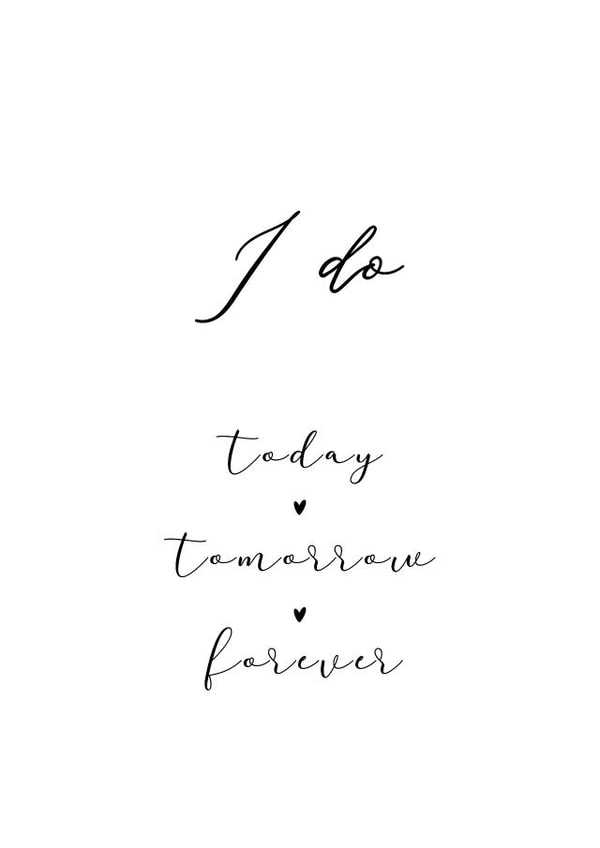 I do
today
tomorrow
forever